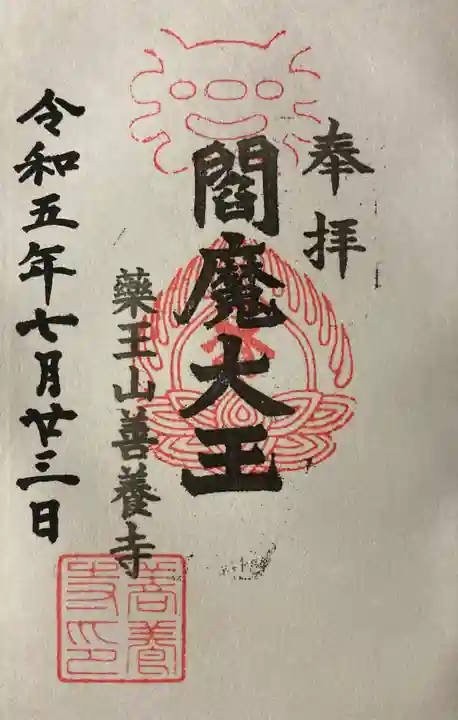 奉拝
閻魔大王
薬王山善養寺
令和五年七月廿三日
善養
寺印